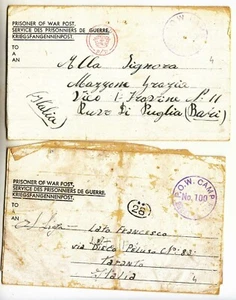 PRISONER OF WAR POST
SERVICE DES PRISONNIERS DE GUERRE
KRIEGSFANGENNENPOST.
TO
A
AN
Alla Signora
Mazzone Grazia
Vico 1° N. 11
Ruvo di Puglia (Bari)
(Italia)
4
PRISONER OF WAR POST
SERVICE DES PRISONNIERS DE GUERRE.
KRIEGSFANGENNENPOST.
P.O.W. CAMP
No. 100
TO
A
AN
28
Lato Francesco
via N° 83
Taranto
Italia
4